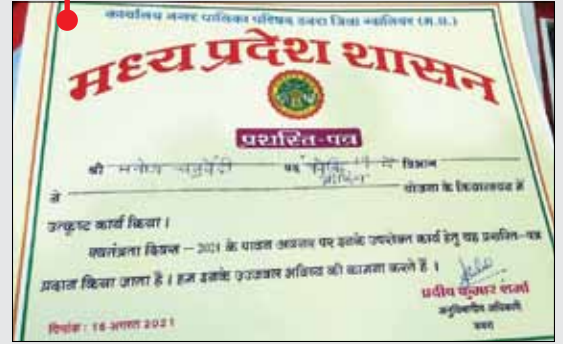 कार्यालय नगर पालिका परिषद डबरा जिला ग्वालियर (म.प्र.)
मध्य प्रदेश शासन
प्रशस्ति-पत्र
श्री मनोज चतुर्वेदी पद विभाग
ने योजना के क्रियान्वयन में
उत्कृष्ट कार्य किया ।
स्वतंत्रता दिवस – 2021 के पावन अवसर पर इनके उपरोक्त कार्य हेतु यह प्रशस्ति-पत्र
प्रदान किया जाता है । हम इनके उज्जवल भविष्य की कामना करते हैं ।
प्रदीप कुमार शर्मा
अनुविभागीय अधिकारी
डबरा
दिनांक : 15 अगस्त 2021